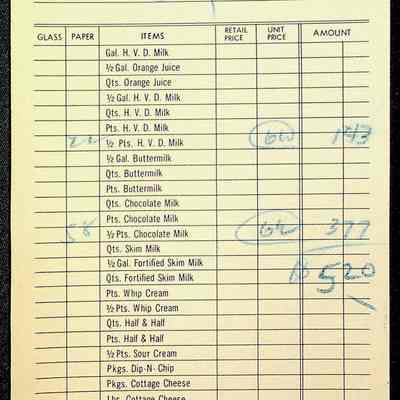 GLASS PAPER ITEMS RETAIL PRICE UNIT PRICE AMOUNT
Gal. H. V. D. Milk
½ Gal. Orange Juice
Qts. Orange Juice
½ Gal. H. V. D. Milk
Qts. H. V. D. Milk
Pts. H. V. D. Milk
22 ½ Pts. H. V. D. Milk 6½ 143
½ Gal. Buttermilk
Qts. Buttermilk
Pts. Buttermilk
Qts. Chocolate Milk
Pts. Chocolate Milk
58 ½ Pts. Chocolate Milk 6½ 377
Qts. Skim Milk
½ Gal. Fortified Skim Milk $520
Qts. Fortified Skim Milk
Pts. Whip Cream
½ Pts. Whip Cream
Qts. Half & Half
Pts. Half & Half
½ Pts. Sour Cream
Pkgs. Dip-N- Chip
Pkgs. Cottage Cheese
Lbs. Cottage Cheese